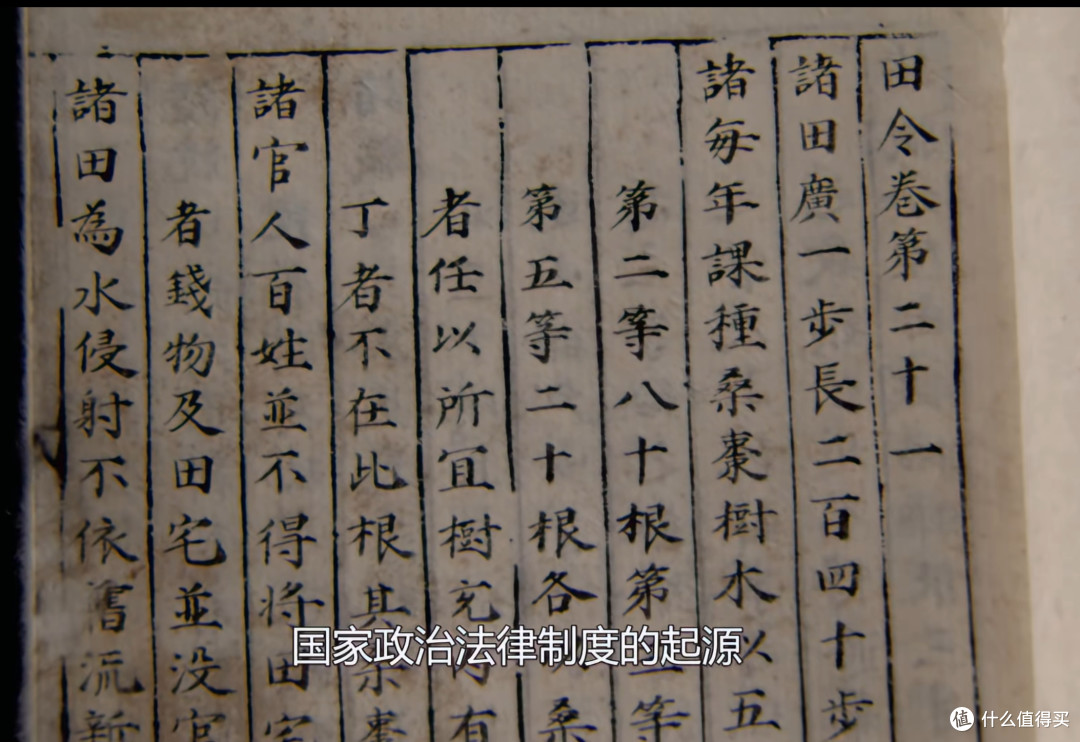 田令卷第二十一
諸田廣一步長二百四十步
諸每年課種桑棗樹木以五
第二等八十根第三等
第五等二十根各 桑
者任以所宜樹充內有
丁者不在此根其桑棗
諸官人百姓並不得將田宅
者錢物及田宅並没官
諸田為水侵射不依舊流新
国家政治法律制度的起源
值 什么值得买